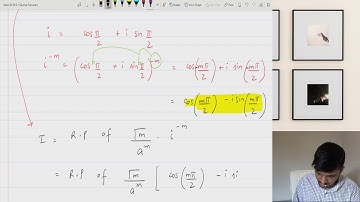 i = cos π/2 + i sin π/2
i^-m = (cos π/2 + i sin π/2)^-m = cos(mπ/2) + i sin(mπ/2)
= cos(mπ/2) - i sin(mπ/2)
I = R.P of Γm/a^m . i^-m
= R.P of Γm/a^m [ cos(mπ/2) - i si